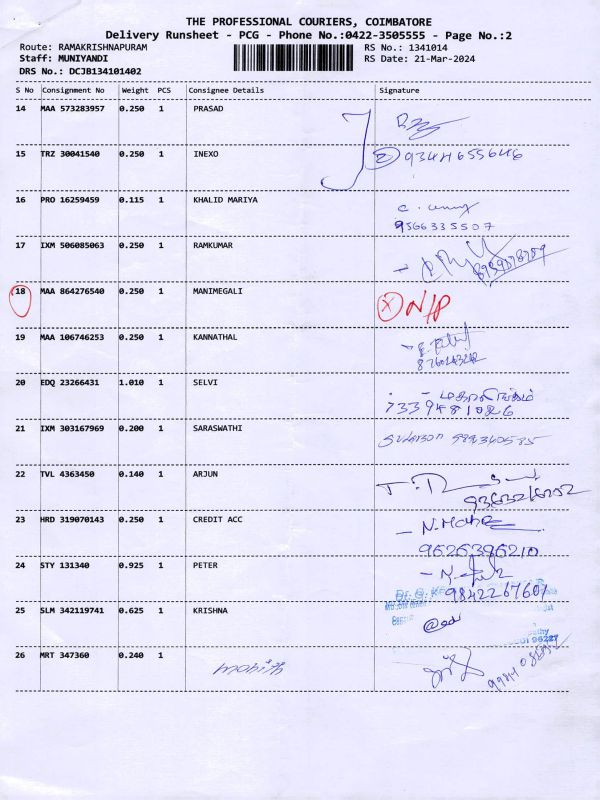 THE PROFESSIONAL COURIERS, COIMBATORE
Delivery Runsheet - PCG - Phone No.:0422-3505555 - Page No.:2
Route: RAMAKRISHNAPURAM RS No.: 1341014
Staff: MUNIYANDI RS Date: 21-Mar-2024
DRS No.: DCJB134101402
S No Consignment No Weight PCS Consignee Details Signature
14 MAA 573283957 0.250 1 PRASAD
15 TRZ 30041540 0.250 1 INEXO 2 9344655646
16 PRO 16259459 0.115 1 KHALID MARIYA
9566335507
17 IXM 506085063 0.250 1 RAMKUMAR
18 MAA 864276540 0.250 1 MANIMEGALI X N/P
19 MAA 106746253 0.250 1 KANNATHAL
8760243242
20 EDQ 23266431 1.010 1 SELVI மகாலிங்கம்
7339481026
21 IXM 303167969 0.200 1 SARASWATHI
22 TVL 4363450 0.140 1 ARJUN
9363216202
23 HRD 319070143 0.250 1 CREDIT ACC
9626396210
24 STY 131340 0.925 1 PETER
9842267607
25 SLM 342119741 0.625 1 KRISHNA
26 MRT 347360 0.240 1